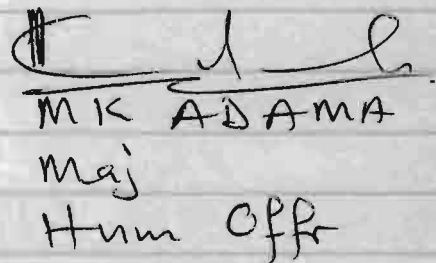 MK ADAMA
Maj
Hum Offr